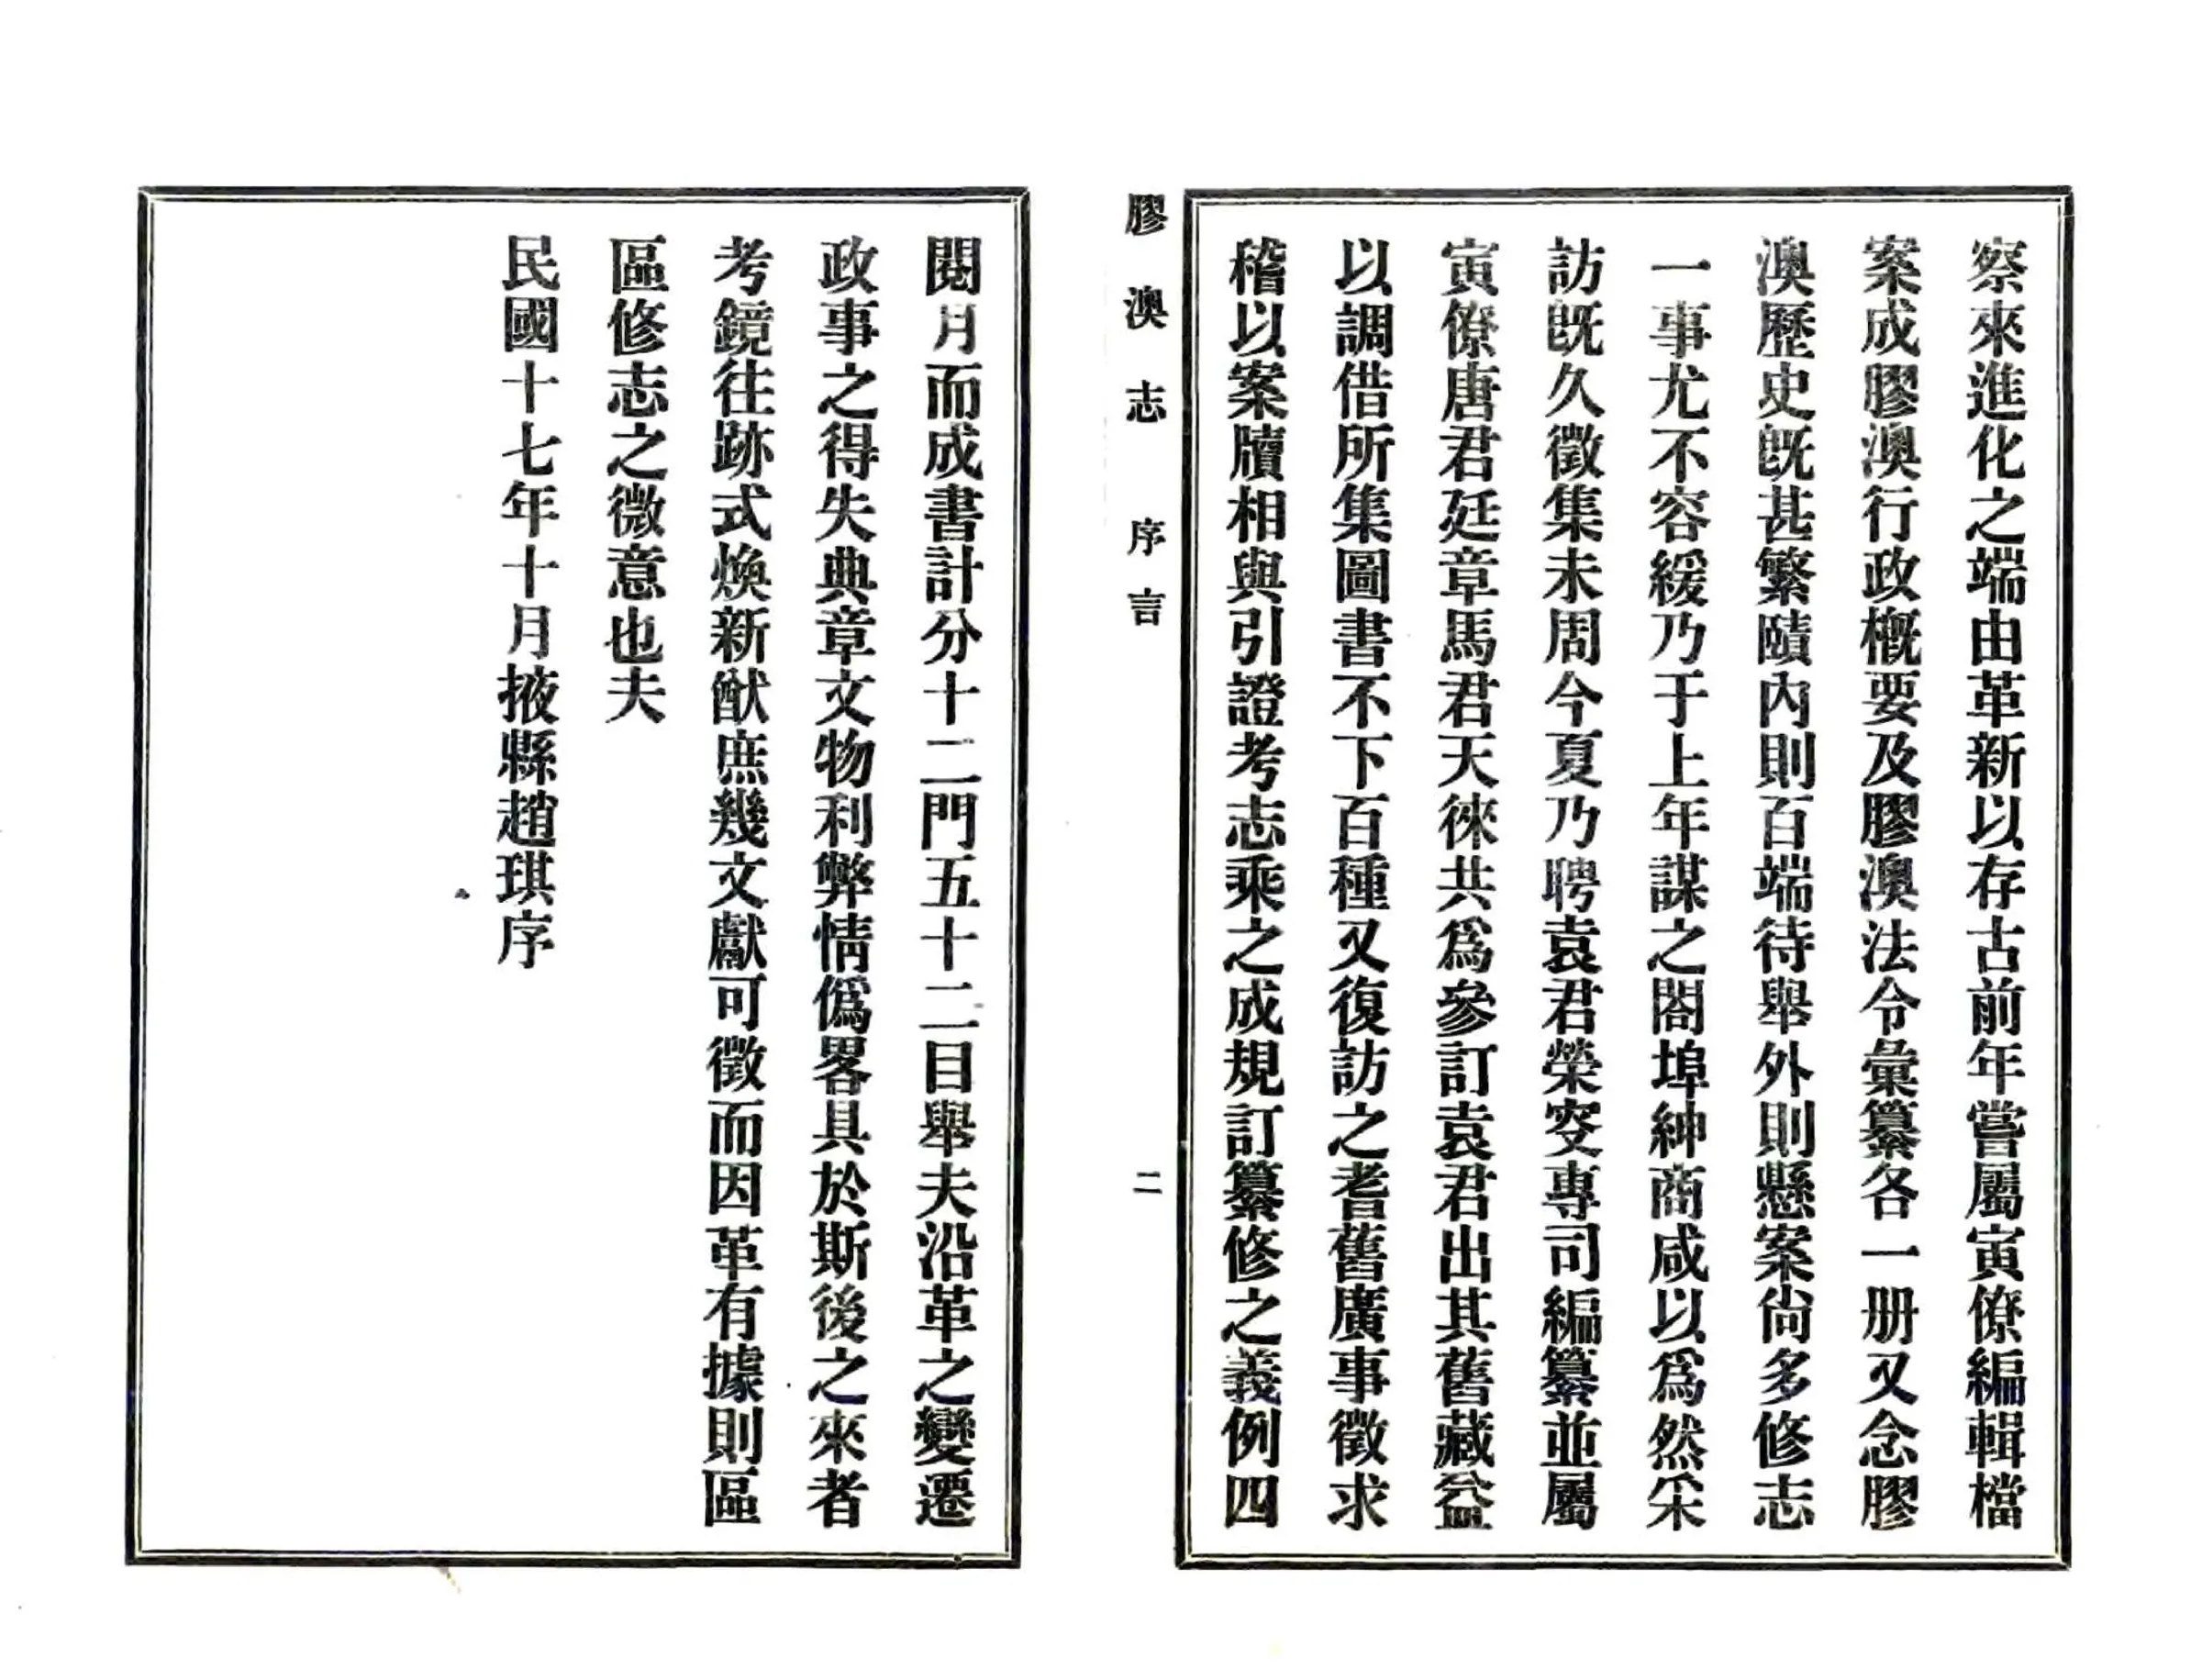 察來進化之端由革新以存古前年嘗屬寅僚編輯檔
案成膠澳行政概要及膠澳法令彙纂各一册又念膠
澳歷史既甚繁賾內則百端待舉外則懸案尙多修志
一事尤不容緩乃于上年謀之閤埠紳商咸以爲然采
訪既久徵集未周今夏乃聘袁君榮叜專司編纂並屬
寅僚唐君廷章馬君天徠共爲參訂袁君出其舊藏益
以調借所集圖書不下百種又復訪之耆舊廣事徵求
稽以案牘相與引證考志乘之成規訂纂修之義例四
膠澳志 序言 二
閱月而成書計分十二門五十二目舉夫沿革之變遷
政事之得失典章文物利弊情僞畧具於斯後之來者
考鏡往跡式煥新猷庶幾文獻可徵而因革有據則區
區修志之微意也夫
民國十七年十月掖縣趙琪序